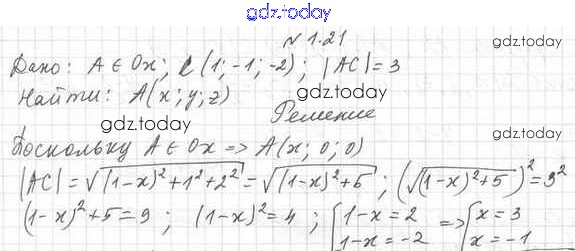 gdz.today
№ 1.21
gdz.today
Дано: A ∈ Ox; C (1; -1; -2); |AC| = 3
gdz.today
Найти: A(x; y; z)
gdz.today
Решение
gdz.today
gdz.today
Поскольку A ∈ Ox => A(x; 0; 0)
|AC| = √((1-x)²+1²+2²) = √((1-x)²+5); (√((1-x)²+5))² = 3²
(1-x)²+5=9; (1-x)²=4; [1-x=2 => [x=3
1-x=-2 x=-1